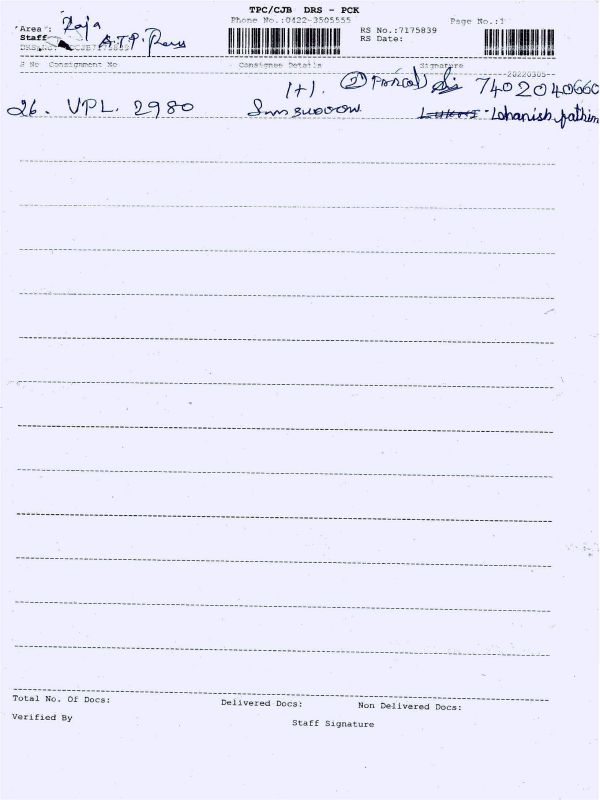 TPC/CJB DRS - PCK
Phone No.:0422-3505555 Page No.:1
Area : Raja RS No.:7175839
Staff A.T.P. RS Date:
S No Consignment No Consignee Details Signature
20220305
1+1. 2 7402040660
26. VPL. 2980
Total No. Of Docs: Delivered Docs: Non Delivered Docs:
Verified By Staff Signature